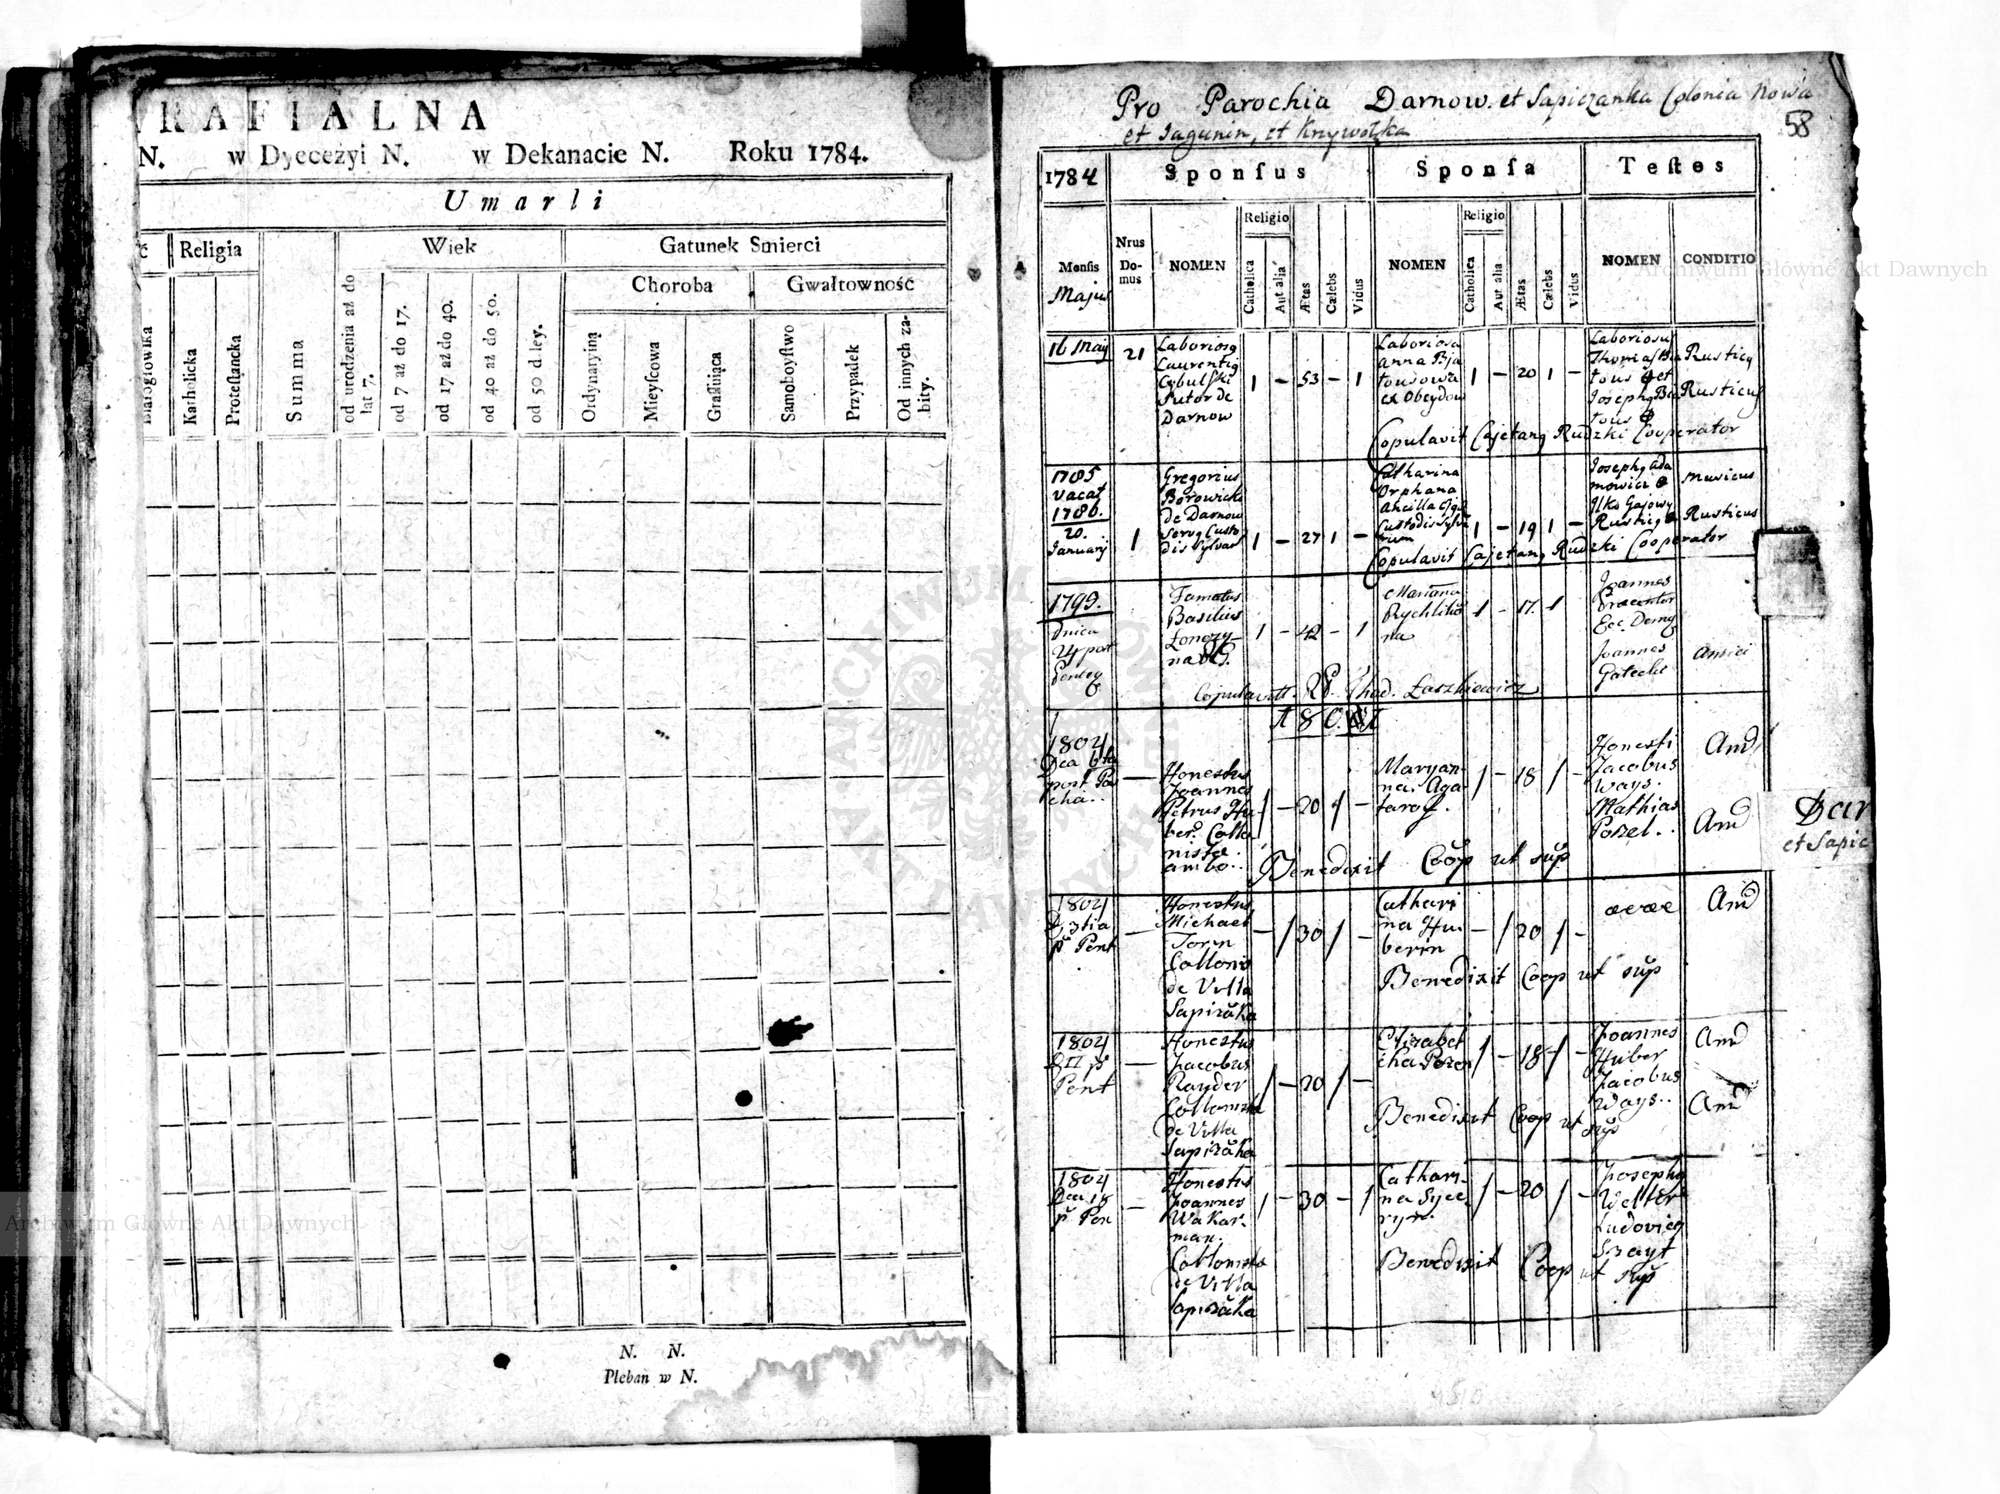 RAFIALNA
N. w Dyecezyi N. w Dekanacie N. Roku 1784.
Umarli
Religia
Wiek
Gatunek Smierci
Choroba
Gwałtowność
Białogłowka
Katholicka
Protestancka
Summa
od urodzenia aż do lat 7.
od 7 aż do 17.
od 17 aż do 40.
od 40 aż do 50.
od 50 d ley.
Ordynaryiną
Mieyscowa
Graſſuiąca
Samoboyſtwo
Przypadek
Od innych zabity.
N. N.
Pleban w N.
Pro Parochia Darnow. et Sapiezanka Colonia Nowa
et Jagunin, et Krzywolka
58
1784 Sponſus Sponſa Teſtes
Menſis
Majus
Nrus Domus
NOMEN
Religio
Catholica
Aut alia
Ætas
Cælebs
Vidus
NOMEN
Religio
Catholica
Aut alia
Ætas
Cælebs
Vidus
NOMEN
CONDITIO
16 Maij
21
Laboriosq
Laurentiq
Cybulſki
Sutor de
Darnow
1 – 53 – 1
Laboriosa
Anna Bja
tousowa
ex Obeydow
1 – 20 1 –
Laboriosu
Thomaſ Bia
tous et
Josephq Bia
tous
Rusticq
Rusticuſ
Copulavit Cajetanq Rudzki Cooperator
1785
vacat
1786.
20.
Januarij
1
Gregorius
Borowicki
de Darnow
Servq Custo
dis Sylvar
1 – 27 1 –
Catharina
Orphana
Ancilla Ejq
Custodis Sylva
rum
1 – 19 1 –
Josephq Ada
mowicz
Ilko Gajowy
Rusticq
Musicus
Rusticus
Copulavit Cajetanq Rudzki Cooperator
1799.
Dnica
Famatus
Basilius
1 – 42 – 1
Mariana
Rychlikó
na
1 – 17. 1
Joannes
Præcentor
Ecc.
Joannes
Gałecki
Amici
Copulavit. Laszkiewicz
1804
Dca 6ta
post Pas
cha..
—
Honestus
Joannes
Petrus Hu
ber. Collo
nistæ
ambo..
/ – 20 / –
Maryan
na. Aga
taroſ.
/ – 18 / –
Honesti
Jacobus
Ways.
Mathias
Pozel..
And
And
Benedixit Coop ut sup
Dar
et Sapie
1804
D. 3tia
p Pent
—
Honestus
Michael
Torin
Collonis
de Villa
Sapizāka
– / 30 / –
Cathari
na Hu
berin
– / 20 / –
And
Benedixit Coop ut sup
1804
D II p
Pent
—
Honestus
Jacobus
Rayder
Collonista
de Villa
Sapizāka
/ – 20 / –
Elizabet
cha Pozel
/ – 18 / –
Joannes
Huber
Jacobus
Ways..
And
And
Benedixit Coop ut sup
1804
Dca 18
p Pen
—
Honestus
Joannes
Wakar
man.
Collonista
de Villa
Sapizāka
/ – 30 – /
Cathari
na
/ – 20 / –
Josephq
Welter
Ludovicq
Szayt
Benedixit Coop ut sup
Archiwum Główne Akt Dawnych
Archiwum Główne Akt Dawnych
ARCHIWUM GŁÓWNE AKT DAWNYCH